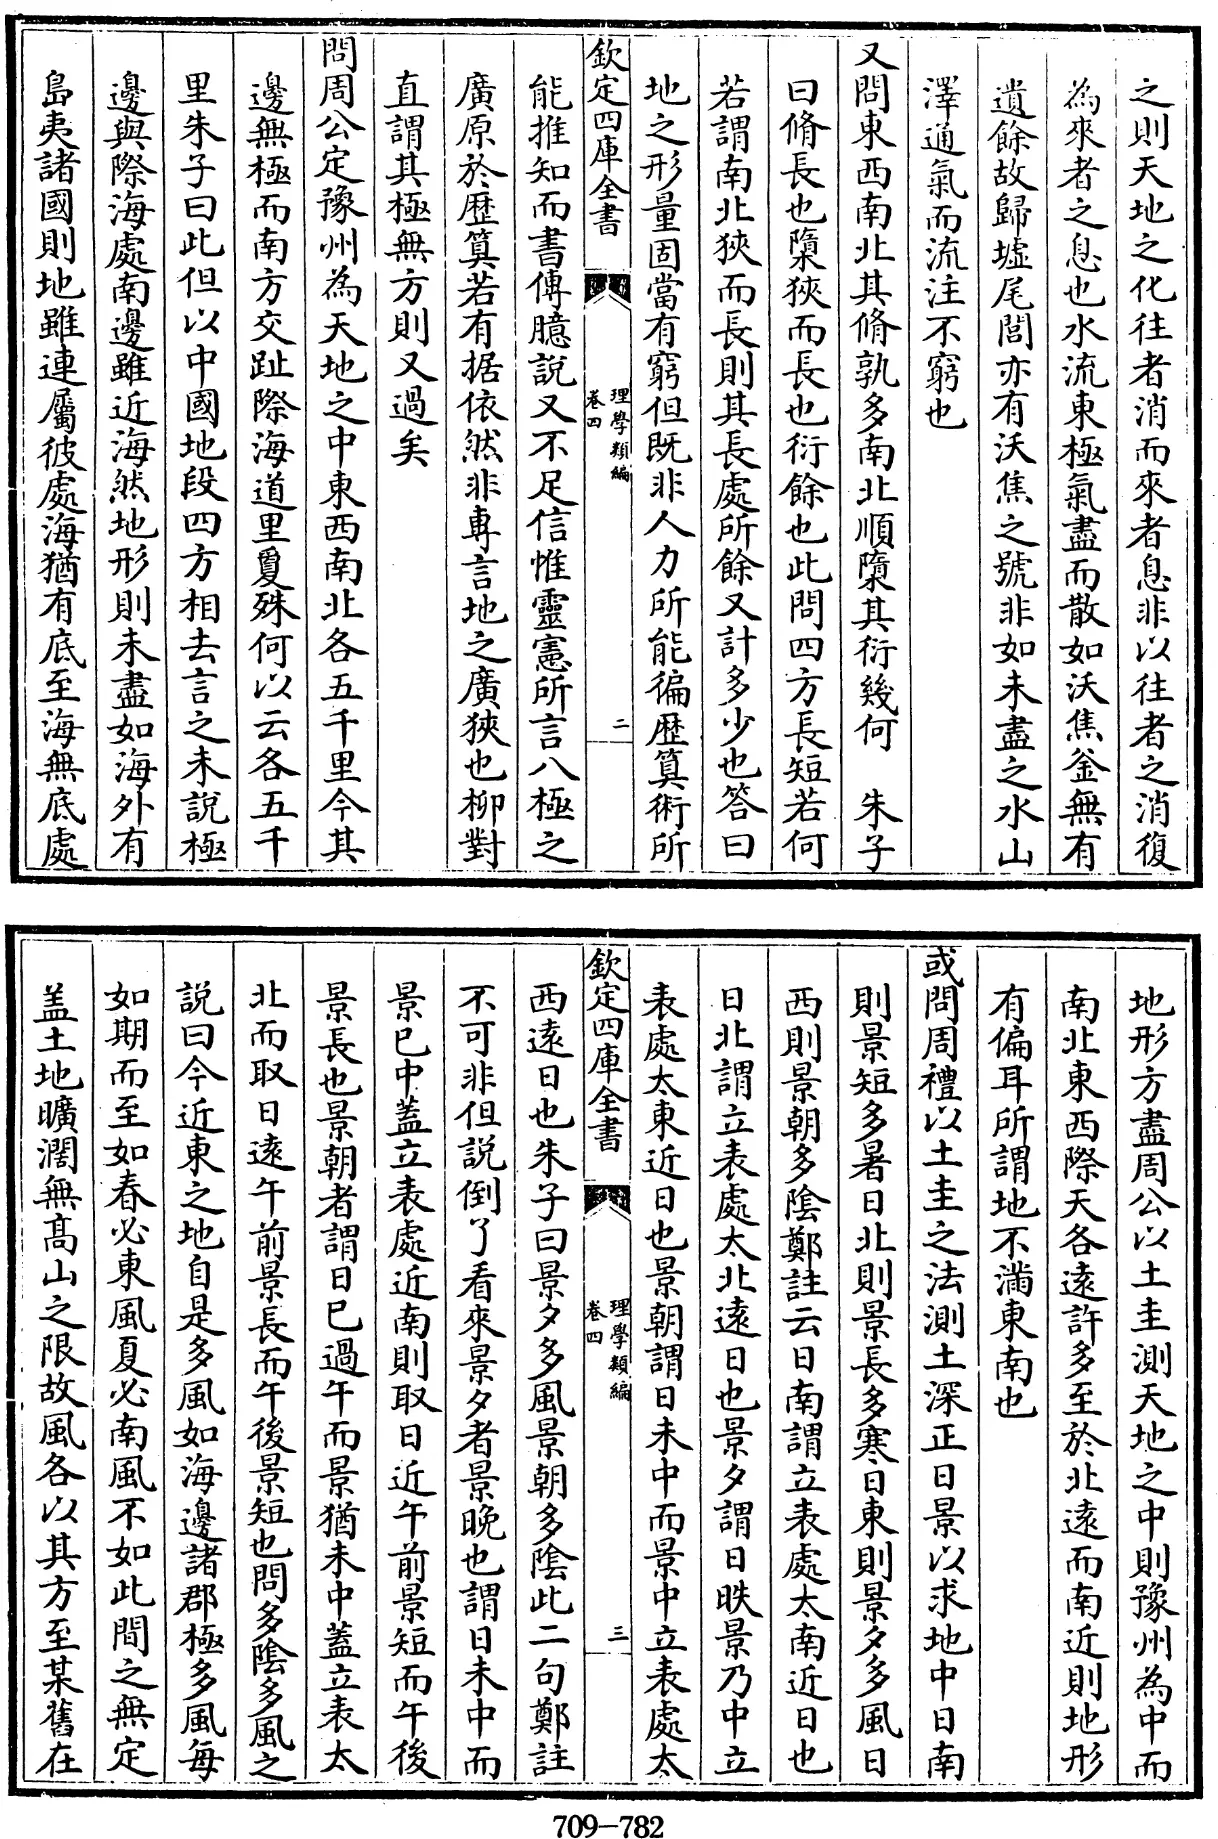 之則天地之化往者消而來者息非以往者之消復
為來者之息也水流東極氣盡而散如沃焦釜無有
遺餘故歸墟尾閭亦有沃焦之號非如未盡之水山
澤通氣而流注不窮也
又問東西南北其脩孰多南北順隳其衍幾何　朱子
曰脩長也隳狹而長也衍餘也此問四方長短若何
若謂南北狹而長則其長處所餘又計多少也答曰
地之形量固當有窮但既非人力所能徧歴算術所
欽定四庫全書
理學類編
卷四
二
能推知而書傳臆說又不足信惟靈憲所言八極之
廣原於歴算若有据依然非專言地之廣狹也柳對
直謂其極無方則又過矣
問周公定豫州為天地之中東西南北各五千里今其
邊無極而南方交趾際海道里夐殊何以云各五千
里朱子曰此但以中國地段四方相去言之未說極
邊與際海處南邊雖近海然地形則未盡如海外有
島夷諸國則地雖連屬彼處海猶有底至海無底處
地形方盡周公以土圭測天地之中則豫州為中而
南北東西際天各遠許多至於北遠而南近則地形
有偏耳所謂地不滿東南也
或問周禮以土圭之法測土深正日景以求地中日南
則景短多暑日北則景長多寒日東則景夕多風日
西則景朝多陰鄭註云日南謂立表處太南近日也
日北謂立表處太北遠日也景夕謂日昳景乃中立
表處太東近日也景朝謂日未中而景中立表處太
欽定四庫全書
理學類編
卷四
三
西遠日也朱子曰景夕多風景朝多陰此二句鄭註
不可非但說倒了看來景夕者景晚也謂日未中而
景已中蓋立表處近南則取日近午前景短而午後
景長也景朝者謂日已過午而景猶未中蓋立表太
北而取日遠午前景長而午後景短也問多陰多風之
說曰今近東之地自是多風如海邊諸郡極多風每
如期而至如春必東風夏必南風不如此間之無定
盖土地曠濶無高山之限故風各以其方至某舊在
709—782